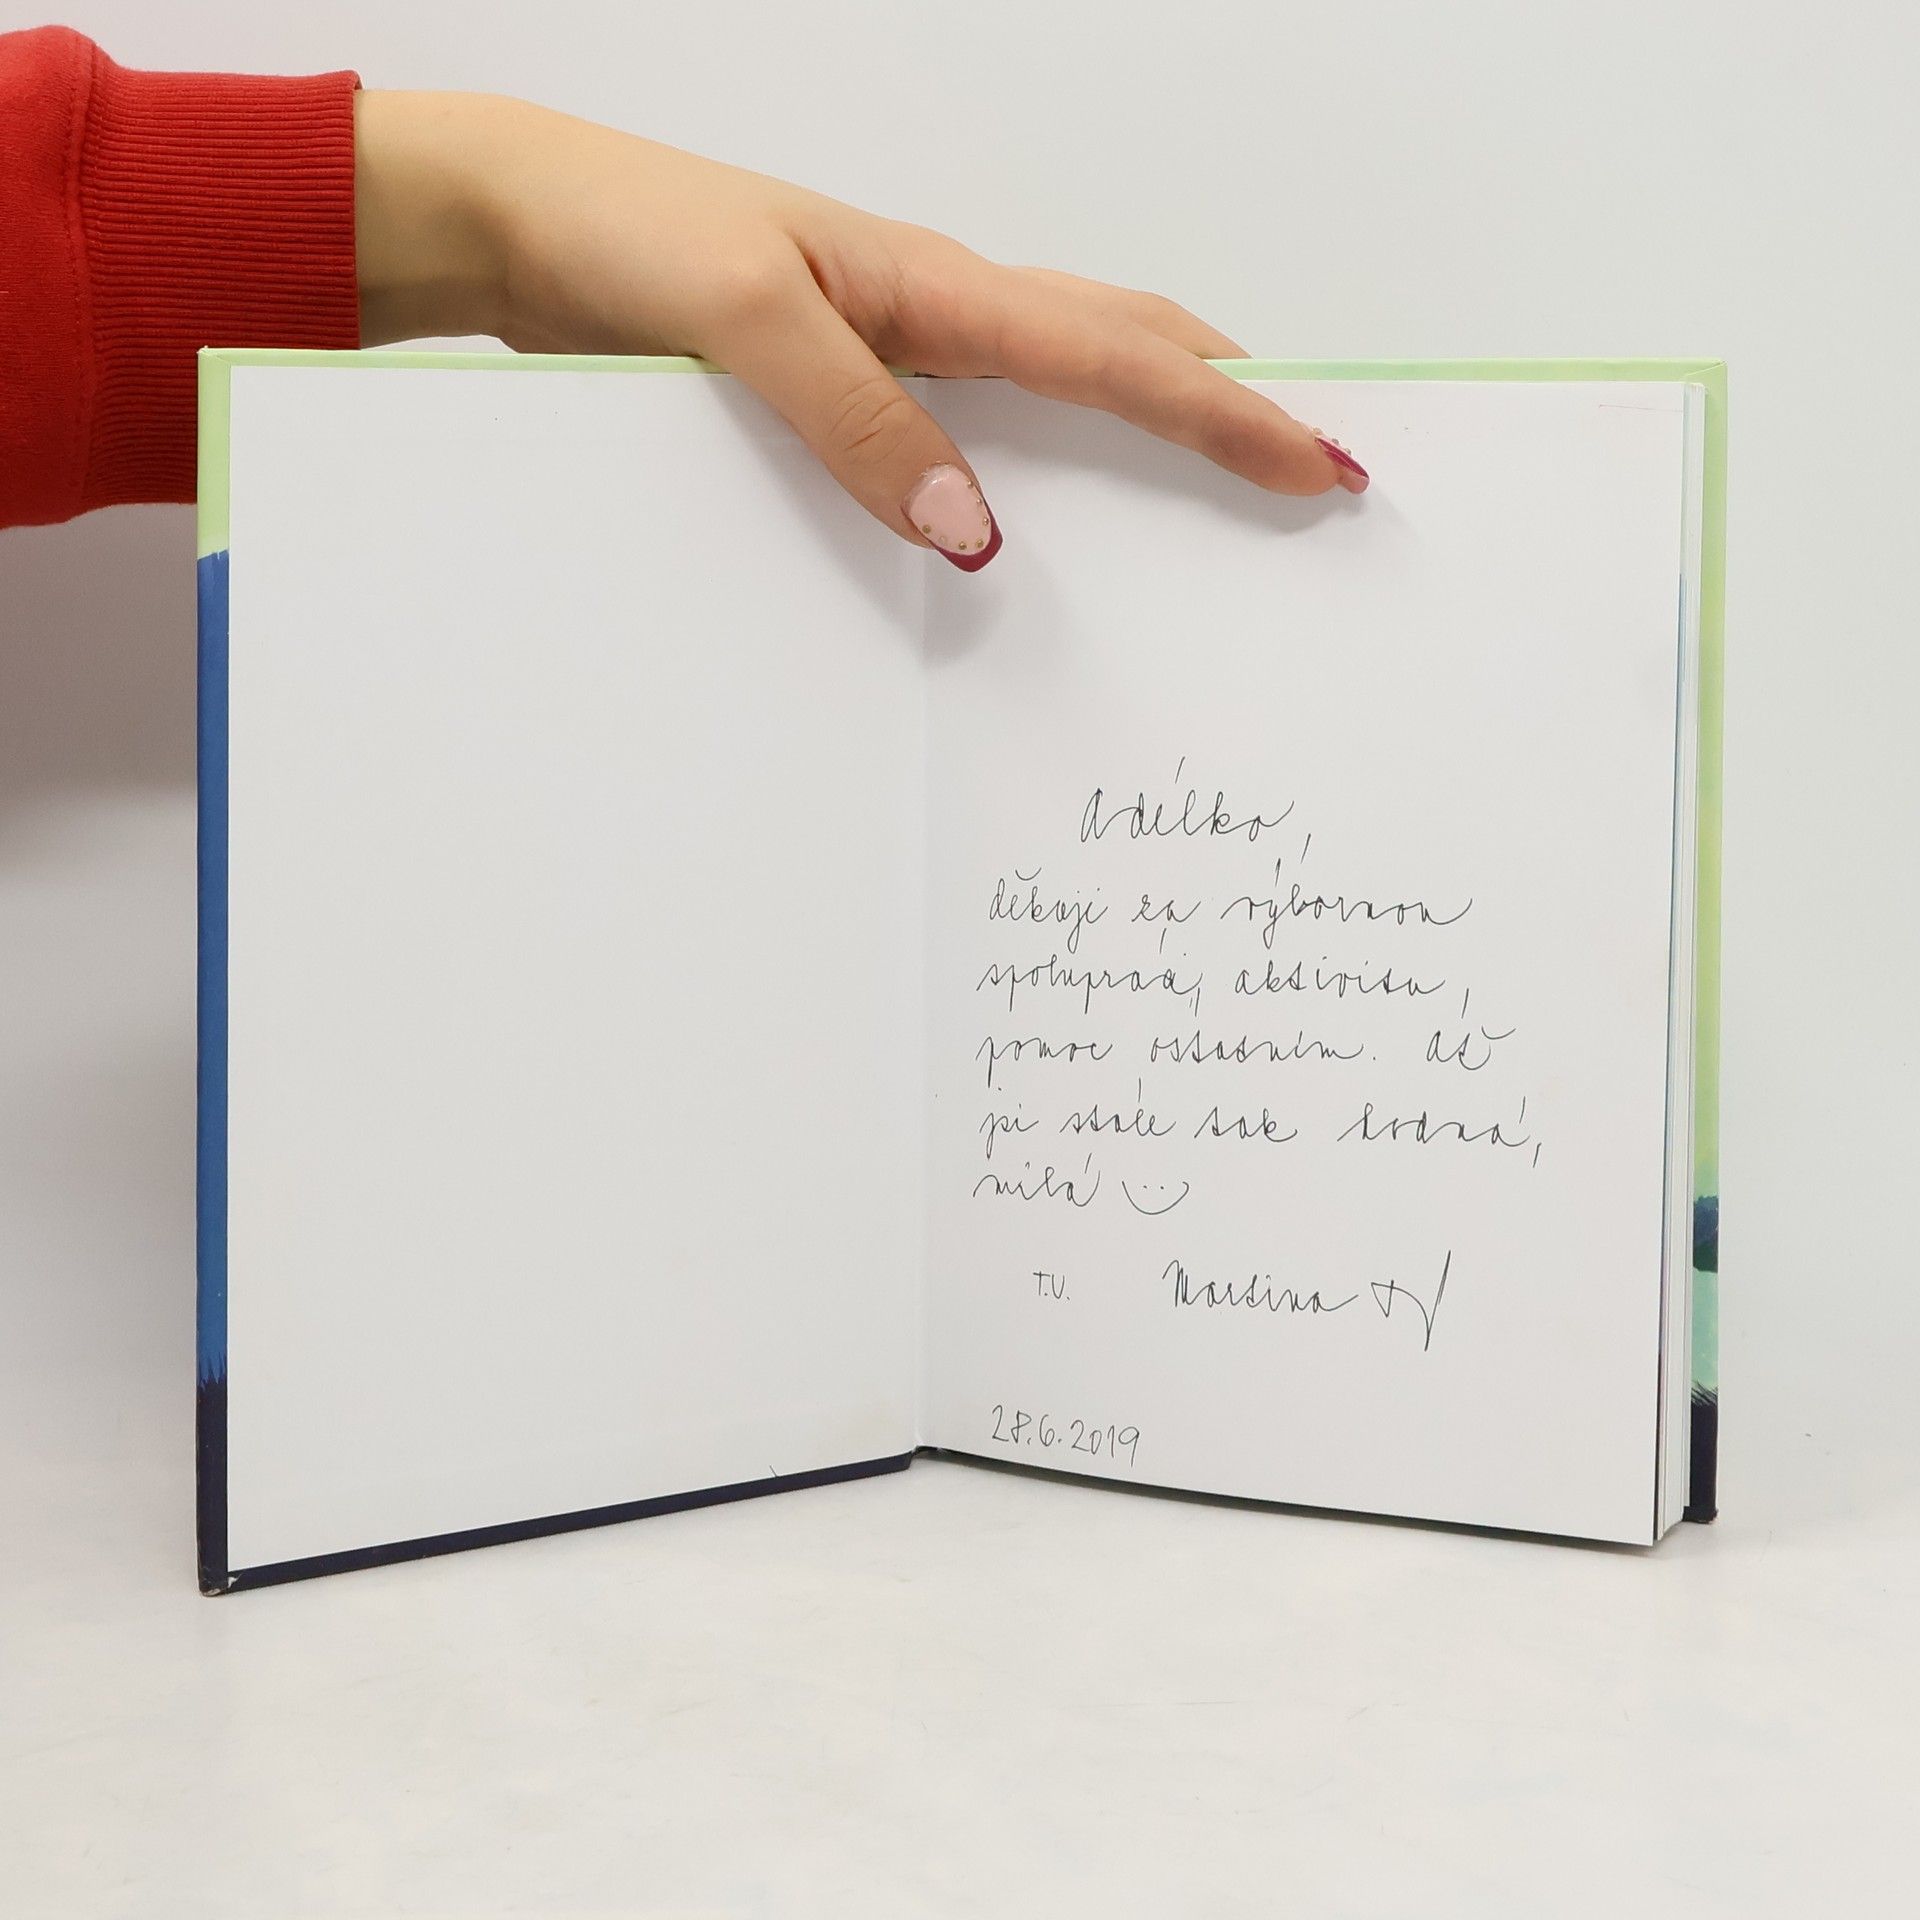 Adélko,
děkuji za výbornou
spolupráci, aktivitu,
pomoc ostatním. Ať
jsi stále tak hodná,
milá
T.U. Martina
28.6.2019